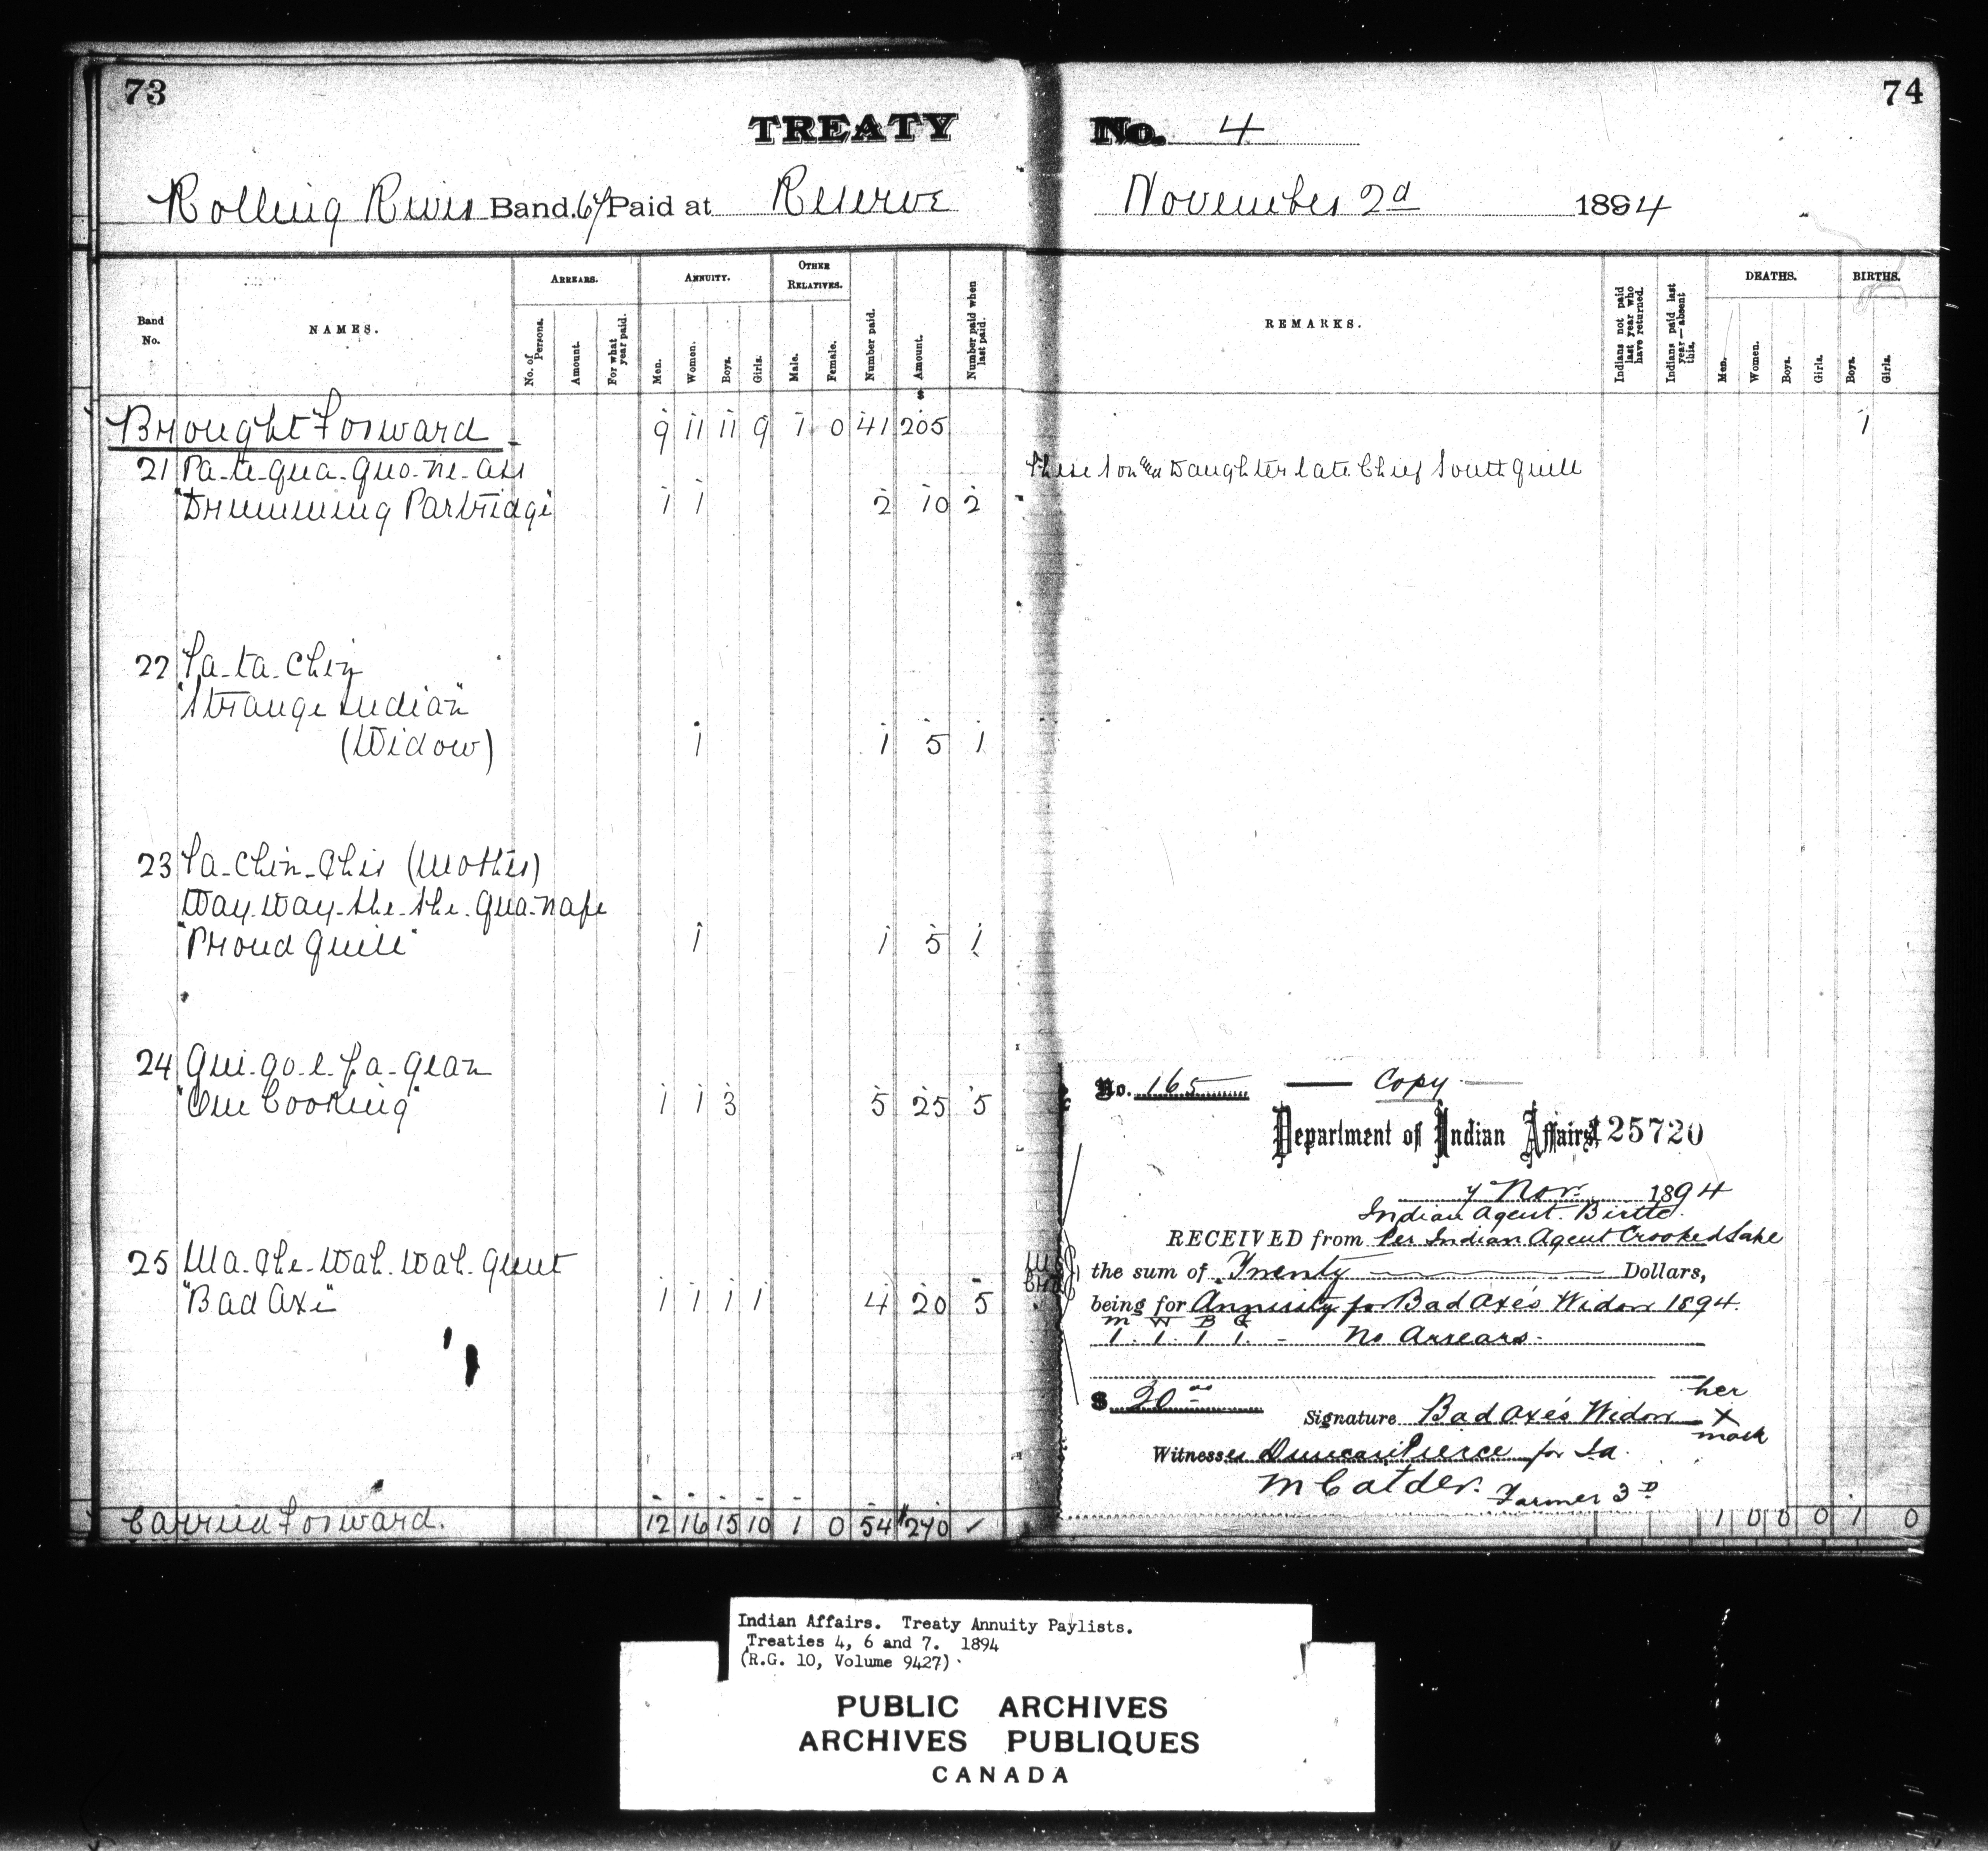 73
74
TREATY No. 4
Rolling River Band. 67 Paid at Reserve November 2d 1894
Band No.
NAMES.
ARREARS.
No. of Persons.
Amount.
For what year paid.
ANNUITY.
Men.
Women.
Boys.
Girls.
OTHER RELATIVES.
Male.
Female.
Number paid.
Amount.
Number paid when last paid.
REMARKS.
Indians not paid last year who have returned.
Indians paid last year—absent this.
DEATHS.
Men.
Women.
Boys.
Girls.
BIRTHS.
Boys.
Girls.
Brought Forward 9 11 11 9 1 0 41 $205 1
21 Pa-te-qua-quo-ne-ass These Son and Daughter late Chief South Quill
"Drumming Partridge" 1 1 2 10 2
22 Ya-ta-Chin
"Strange Indian"
(Widow) 1 1 5 1
23 Ya-Chin-Chis (Mother)
Way-Way-she-she-qua-nape
"Proud Quill" 1 1 5 1
24 Qui-qo-e-ya-gean
"One Cooking" 1 1 3 5 25 5
25 Ma-che-Wah-Wah-quut
"Bad Axe" 1 1 1 1 4 20 5
No. 165 — Copy —
Department of Indian Affairs 125720
7 Nov. 1894
Indian Agent. Birtle.
RECEIVED from Per Indian Agent Crooked Lake
the sum of Twenty Dollars,
being for Annuity for Bad Axe's Widow 1894.
M W B G
1. 1. 1 1. - No Arrears.
$ 20 00
her
Signature Bad Axe's Widow X
mark
Witnesses Duncan Pierce for I.a.
M Calder. Farmer 3D
Carried Forward. 12 16 15 10 1 0 54 $270 ✓ 1 0 0 0 1 0
Indian Affairs. Treaty Annuity Paylists.
Treaties 4, 6 and 7. 1894
(R.G. 10, Volume 9427)
PUBLIC ARCHIVES
ARCHIVES PUBLIQUES
CANADA